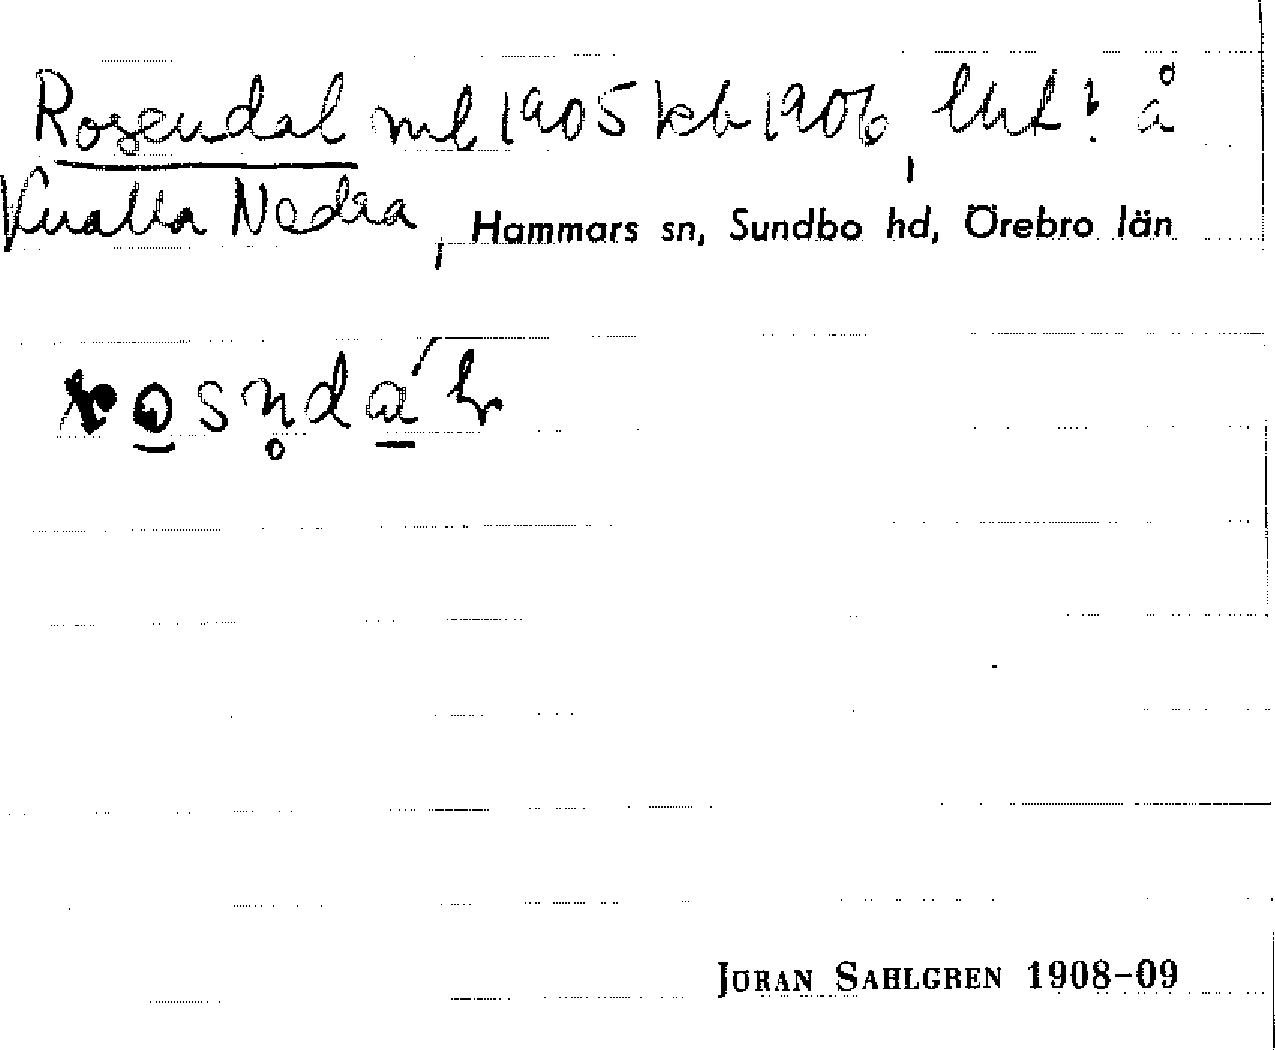 Rosendal ml 1905 kb 1906, lht! å
Knalla Nedra, Hammars sn, Sundbo hd, Örebro län
JÖRAN SAHLGREN 1908-09